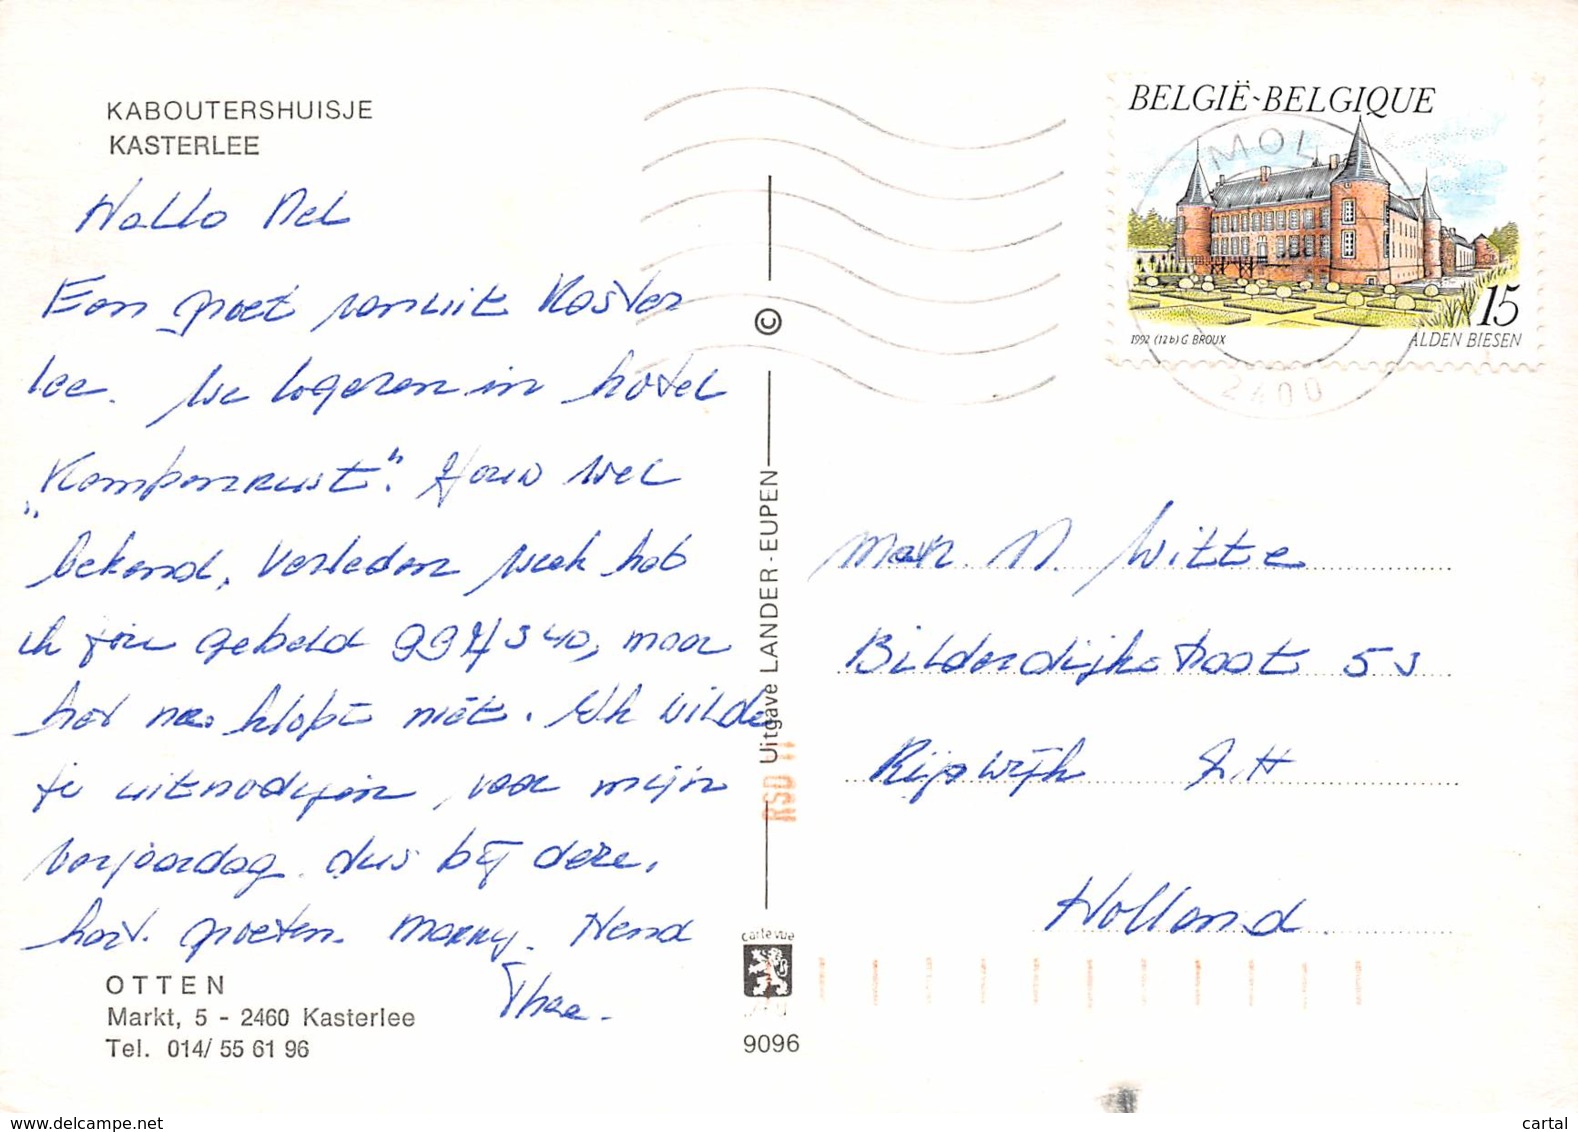 KABOUTERSHUISJE
KASTERLEE
Hallo Nel
Een groet vanuit Kaster
lee. We logeren in hotel
„Kempenrust". Jouw wel
bekend, Verleden week heb
ik jou gebeld 997/340, maar
het no. klopt niet. Ik wilde
je uitnodigen, voor mijn
verjaardag. dus bij deze,
hart. groeten. Marry. Hend
Thea.
OTTEN
Markt, 5 - 2460 Kasterlee
Tel. 014/ 55 61 96
Uitgave LANDER - EUPEN
©
RSD
carte vue
9096
BELGIË-BELGIQUE
15
1992 (12b) G BROUX
ALDEN BIESEN
MOL
2400
N. Witte
Bilderdijkstraat 53
Rijswijk Z.H
Holland
www.delcampe.net
cartal